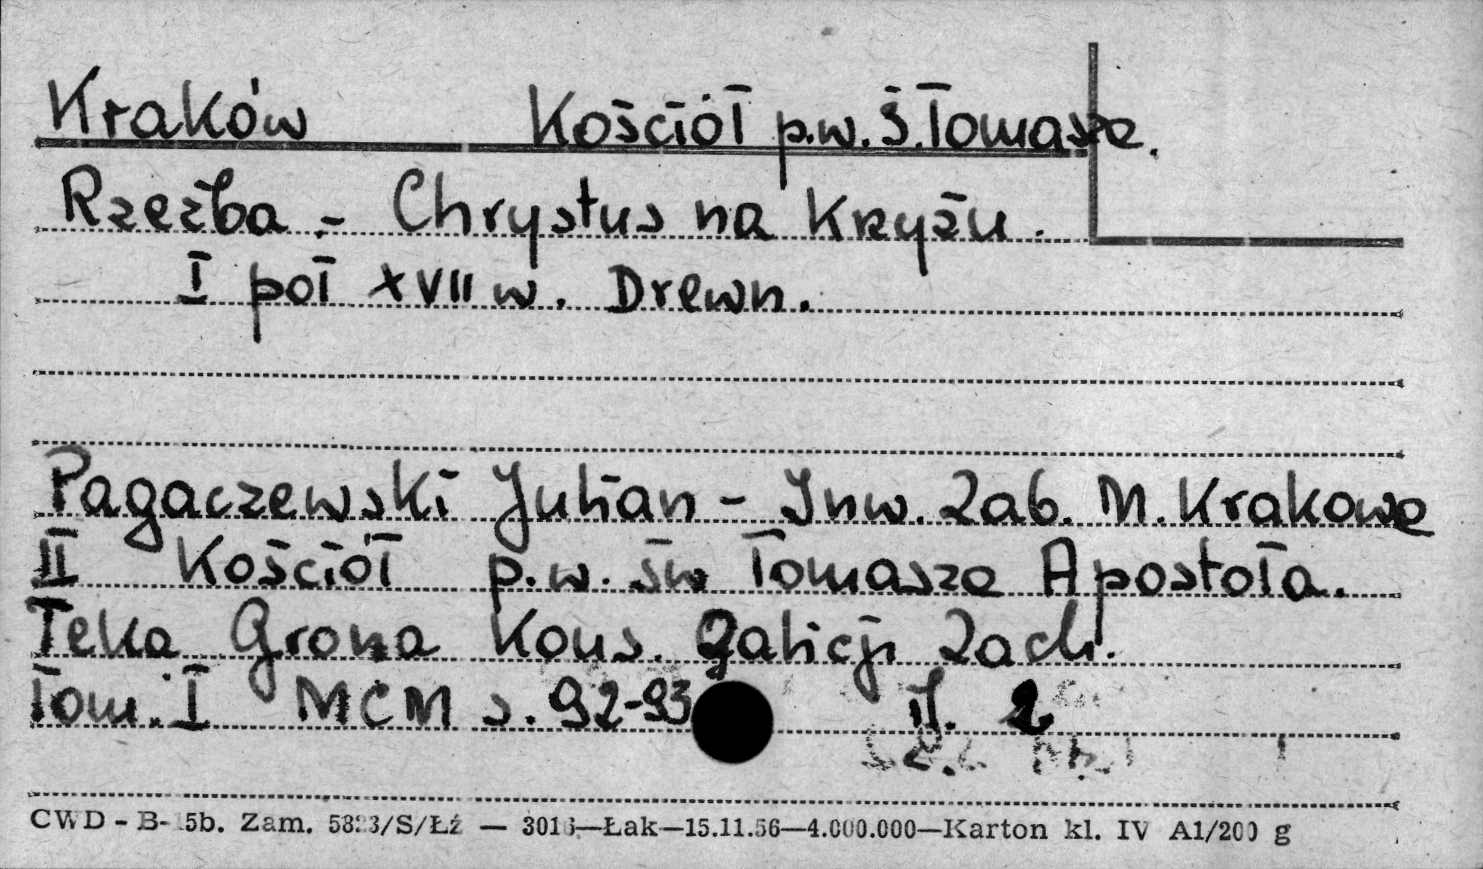 Kraków Kościół p.w. Ś. Tomasza.
Rzeźba - Chrystus na Krzyżu.
I poł XVII w. Drewn.
Pagaczewski Julian - Inw. Zab. M. Krakowa
II Kościół p.w. św Tomasza Apostoła.
Teka Grona Kons. Galicji Zach.
Tom. I MCM s. 92-93 il. 2
CWD - B- 5b. Zam. /S/Łź — —Łak—15.11.56—4.000.000—Karton kl. IV A1/200 g